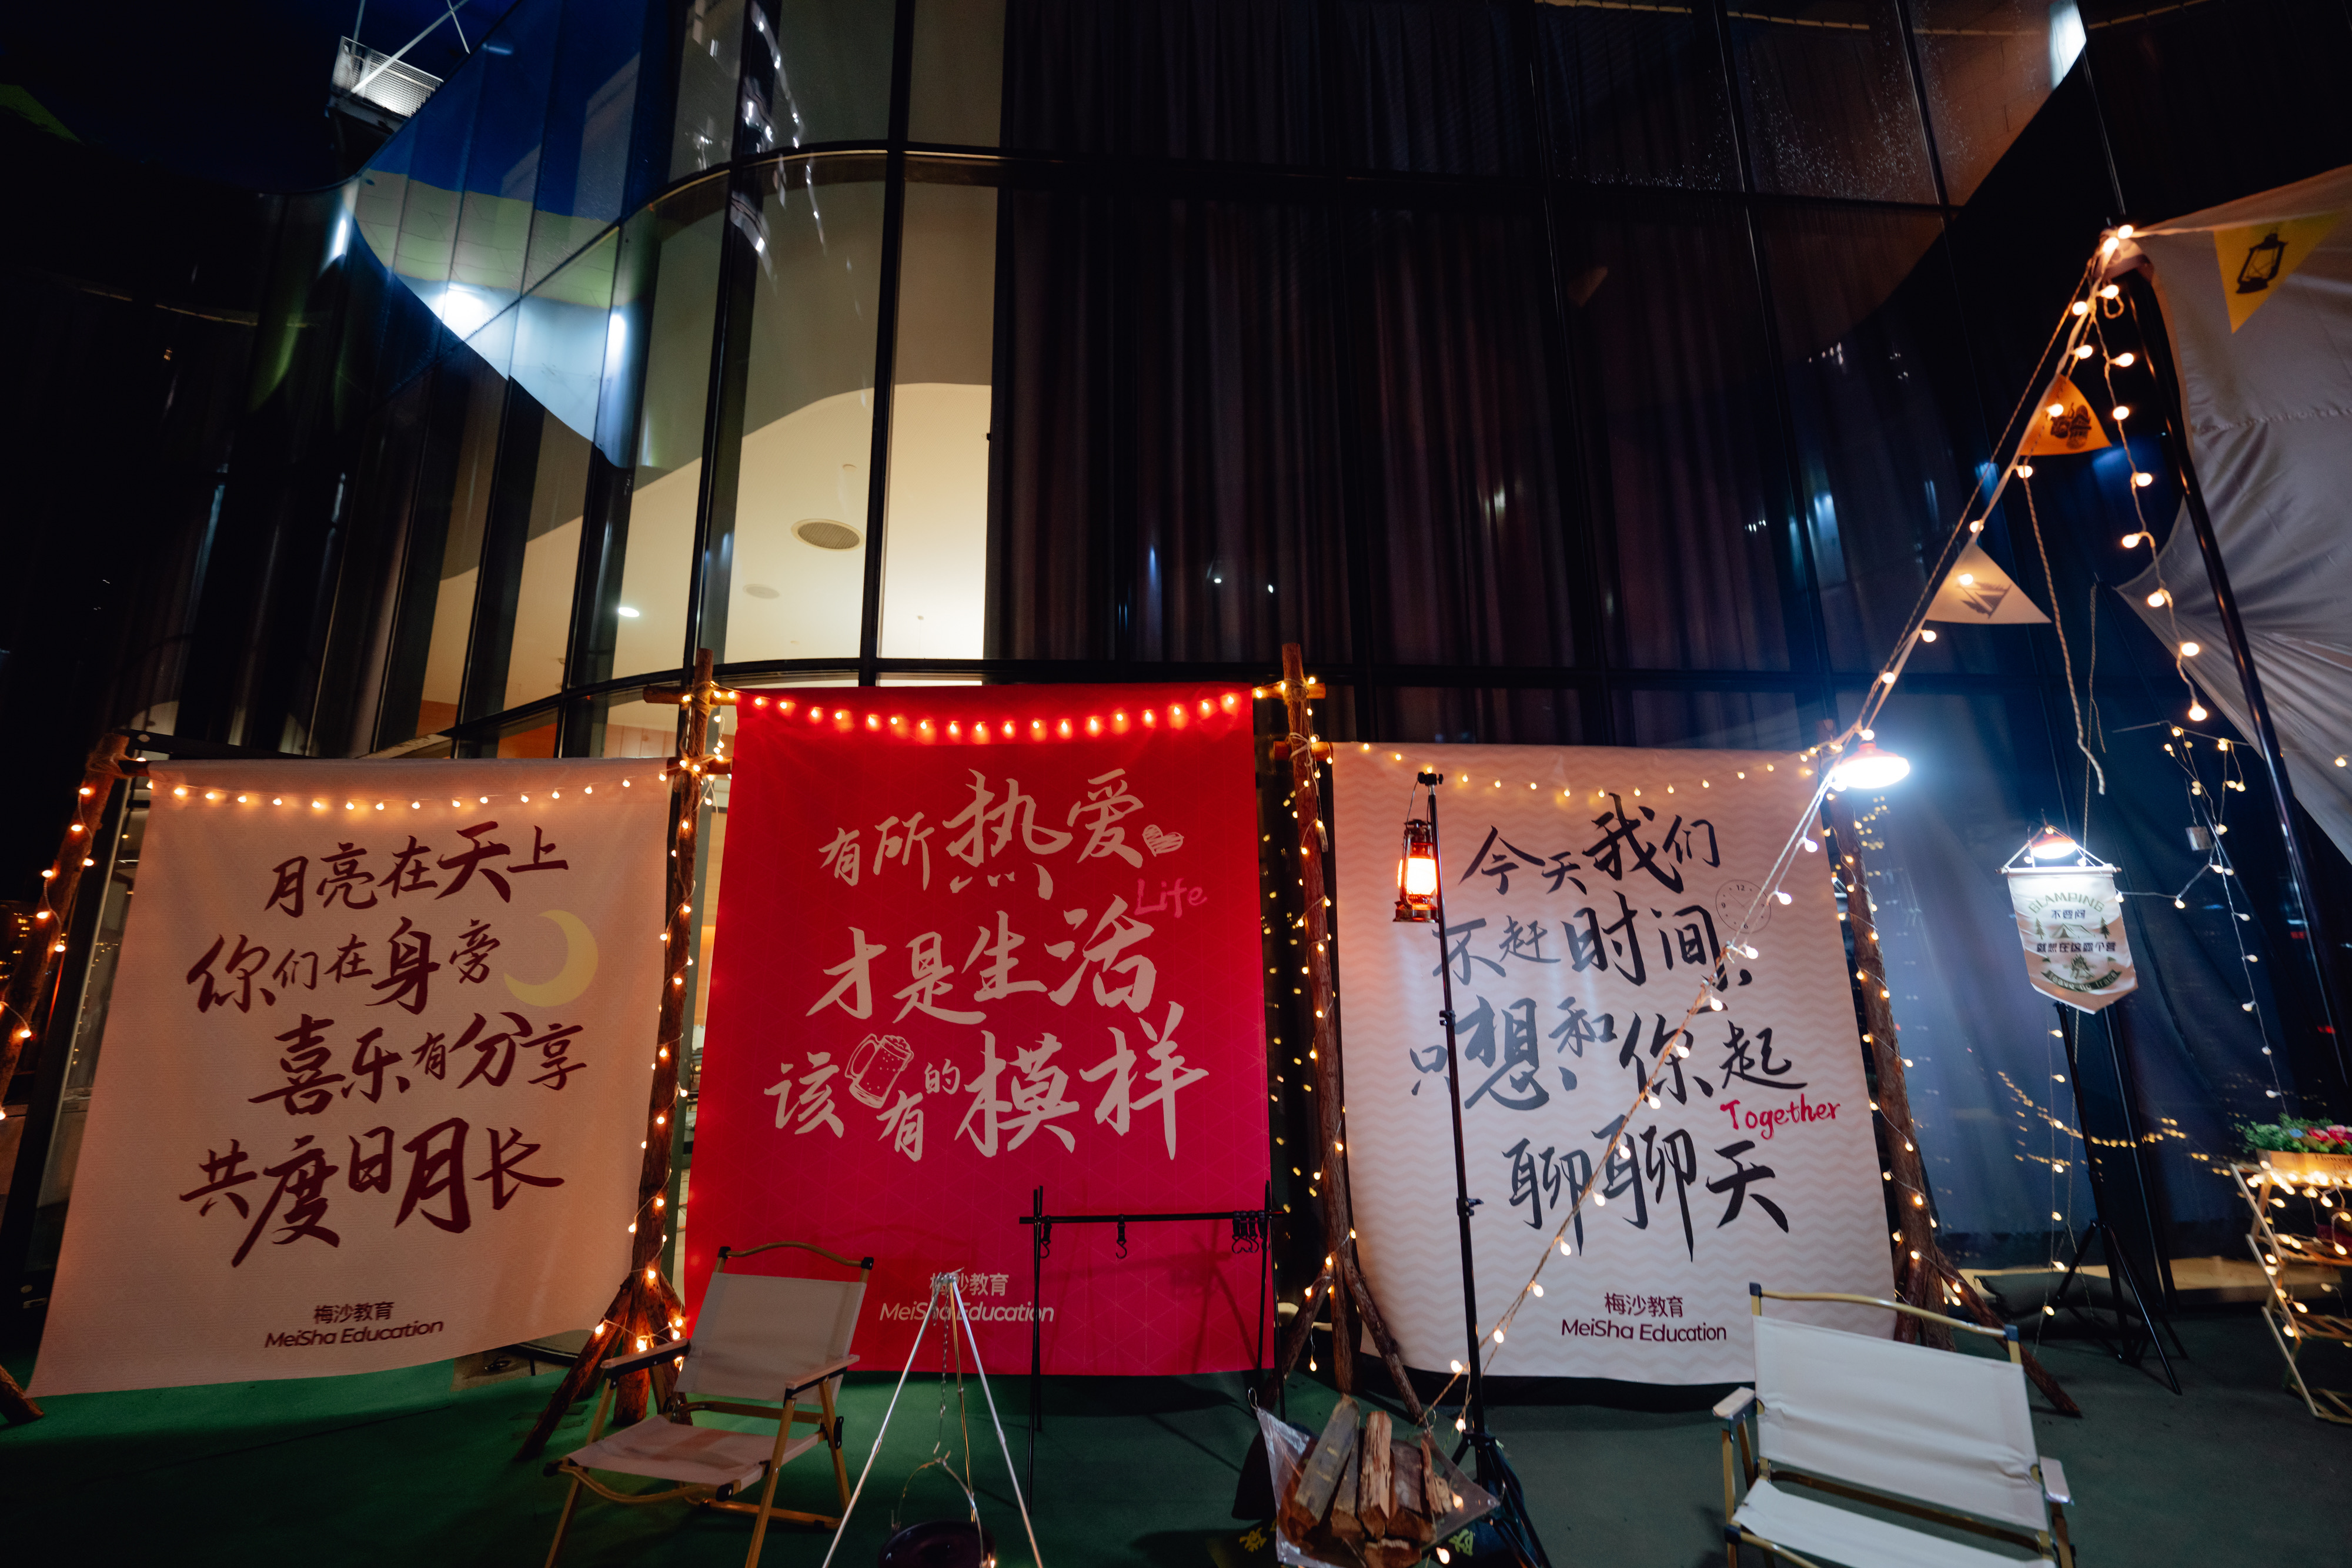 月亮在天上
你们在身旁
喜乐有分享
共度日月长
梅沙教育
MeiSha Education
有所热爱
Life
才是生活
该有的模样
梅沙教育
MeiSha Education
今天我们
不赶时间
只想和你起
Together
聊聊天
梅沙教育
MeiSha Education
GLAMPING
不要问